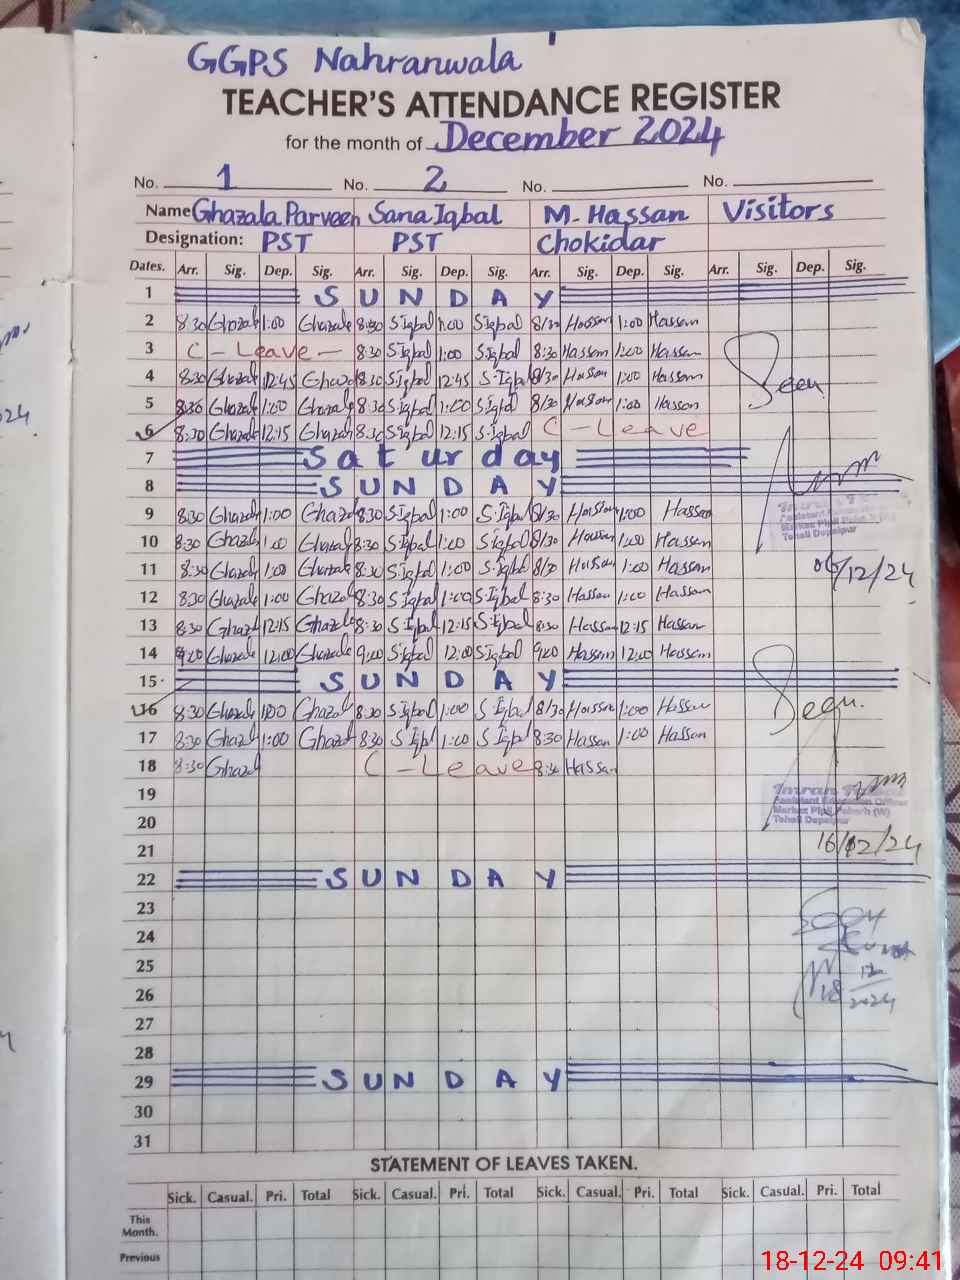 GGPS Nahranwala
TEACHER'S ATTENDANCE REGISTER
for the month of December 2024
No. 1 No. 2 No. No.
Name Ghazala Parveen Sana Iqbal M. Hassan Visitors
Designation: PST PST Chokidar
Dates. Arr. Sig. Dep. Sig. Arr. Sig. Dep. Sig. Arr. Sig. Dep. Sig. Arr. Sig. Dep. Sig.
1 SUNDAY
2 8:30 Ghazala 1:00 Ghazala 8:30 S.Iqbal 1:00 S.Iqbal 8/30 Hassan 1:00 Hassan
3 C - Leave - 8:30 S.Iqbal 1:00 S.Iqbal 8:30 Hassan 1:00 Hassan
4 8:30 Ghazala 12:45 Ghazala 8:30 S.Iqbal 12:45 S.Iqbal 8/30 Hassan 1:00 Hassan
5 8:30 Ghazala 1:00 Ghazala 8:30 S.Iqbal 1:00 S.Iqbal 8/30 Hassan 1:00 Hassan
Seen
6 8:30 Ghazala 12:15 Ghazala 8:30 S.Iqbal 12:15 S.Iqbal C - Leave
7 Saturday
8 SUNDAY
9 8:30 Ghazala 1:00 Ghazala 8:30 S.Iqbal 1:00 S.Iqbal 8/30 Hassan 1:00 Hassan
Assistant Education
Markaz Pipli
Tehsil Depalpur
10 8:30 Ghazala 1:00 Ghazala 8:30 S.Iqbal 1:00 S.Iqbal 8/30 Hassan 1:00 Hassan
11 8:30 Ghazala 1:00 Ghazala 8:30 S.Iqbal 1:00 S.Iqbal 8/30 Hassan 1:00 Hassan
06/12/24
12 8:30 Ghazala 1:00 Ghazala 8:30 S.Iqbal 1:00 S.Iqbal 8:30 Hassan 1:00 Hassan
13 8:30 Ghazala 12:15 Ghazala 8:30 S.Iqbal 12:15 S.Iqbal 8:30 Hassan 12:15 Hassan
14 9:00 Ghazala 12:00 Ghazala 9:00 S.Iqbal 12:00 S.Iqbal 9:00 Hassan 12:00 Hassan
15 SUNDAY
16 8:30 Ghazala 1:00 Ghazala 8:30 S.Iqbal 1:00 S.Iqbal 8/30 Hassan 1:00 Hassan
Seen.
17 8:30 Ghazala 1:00 Ghazala 8:30 S.Iqbal 1:00 S.Iqbal 8:30 Hassan 1:00 Hassan
18 8:30 Ghazala C - Leave 8:30 Hassan
19
Imran
Assistant Education Officer
Markaz Pipli Paharh (W)
Tehsil Depalpur
20
21
16/12/24
22 SUNDAY
23
24
25
26
18 12/2024
27
28
29 SUNDAY
30
31
STATEMENT OF LEAVES TAKEN.
Sick. Casual. Pri. Total Sick. Casual. Pri. Total Sick. Casual. Pri. Total Sick. Casual. Pri. Total
This
Month.
Previous
18-12-24 09:41